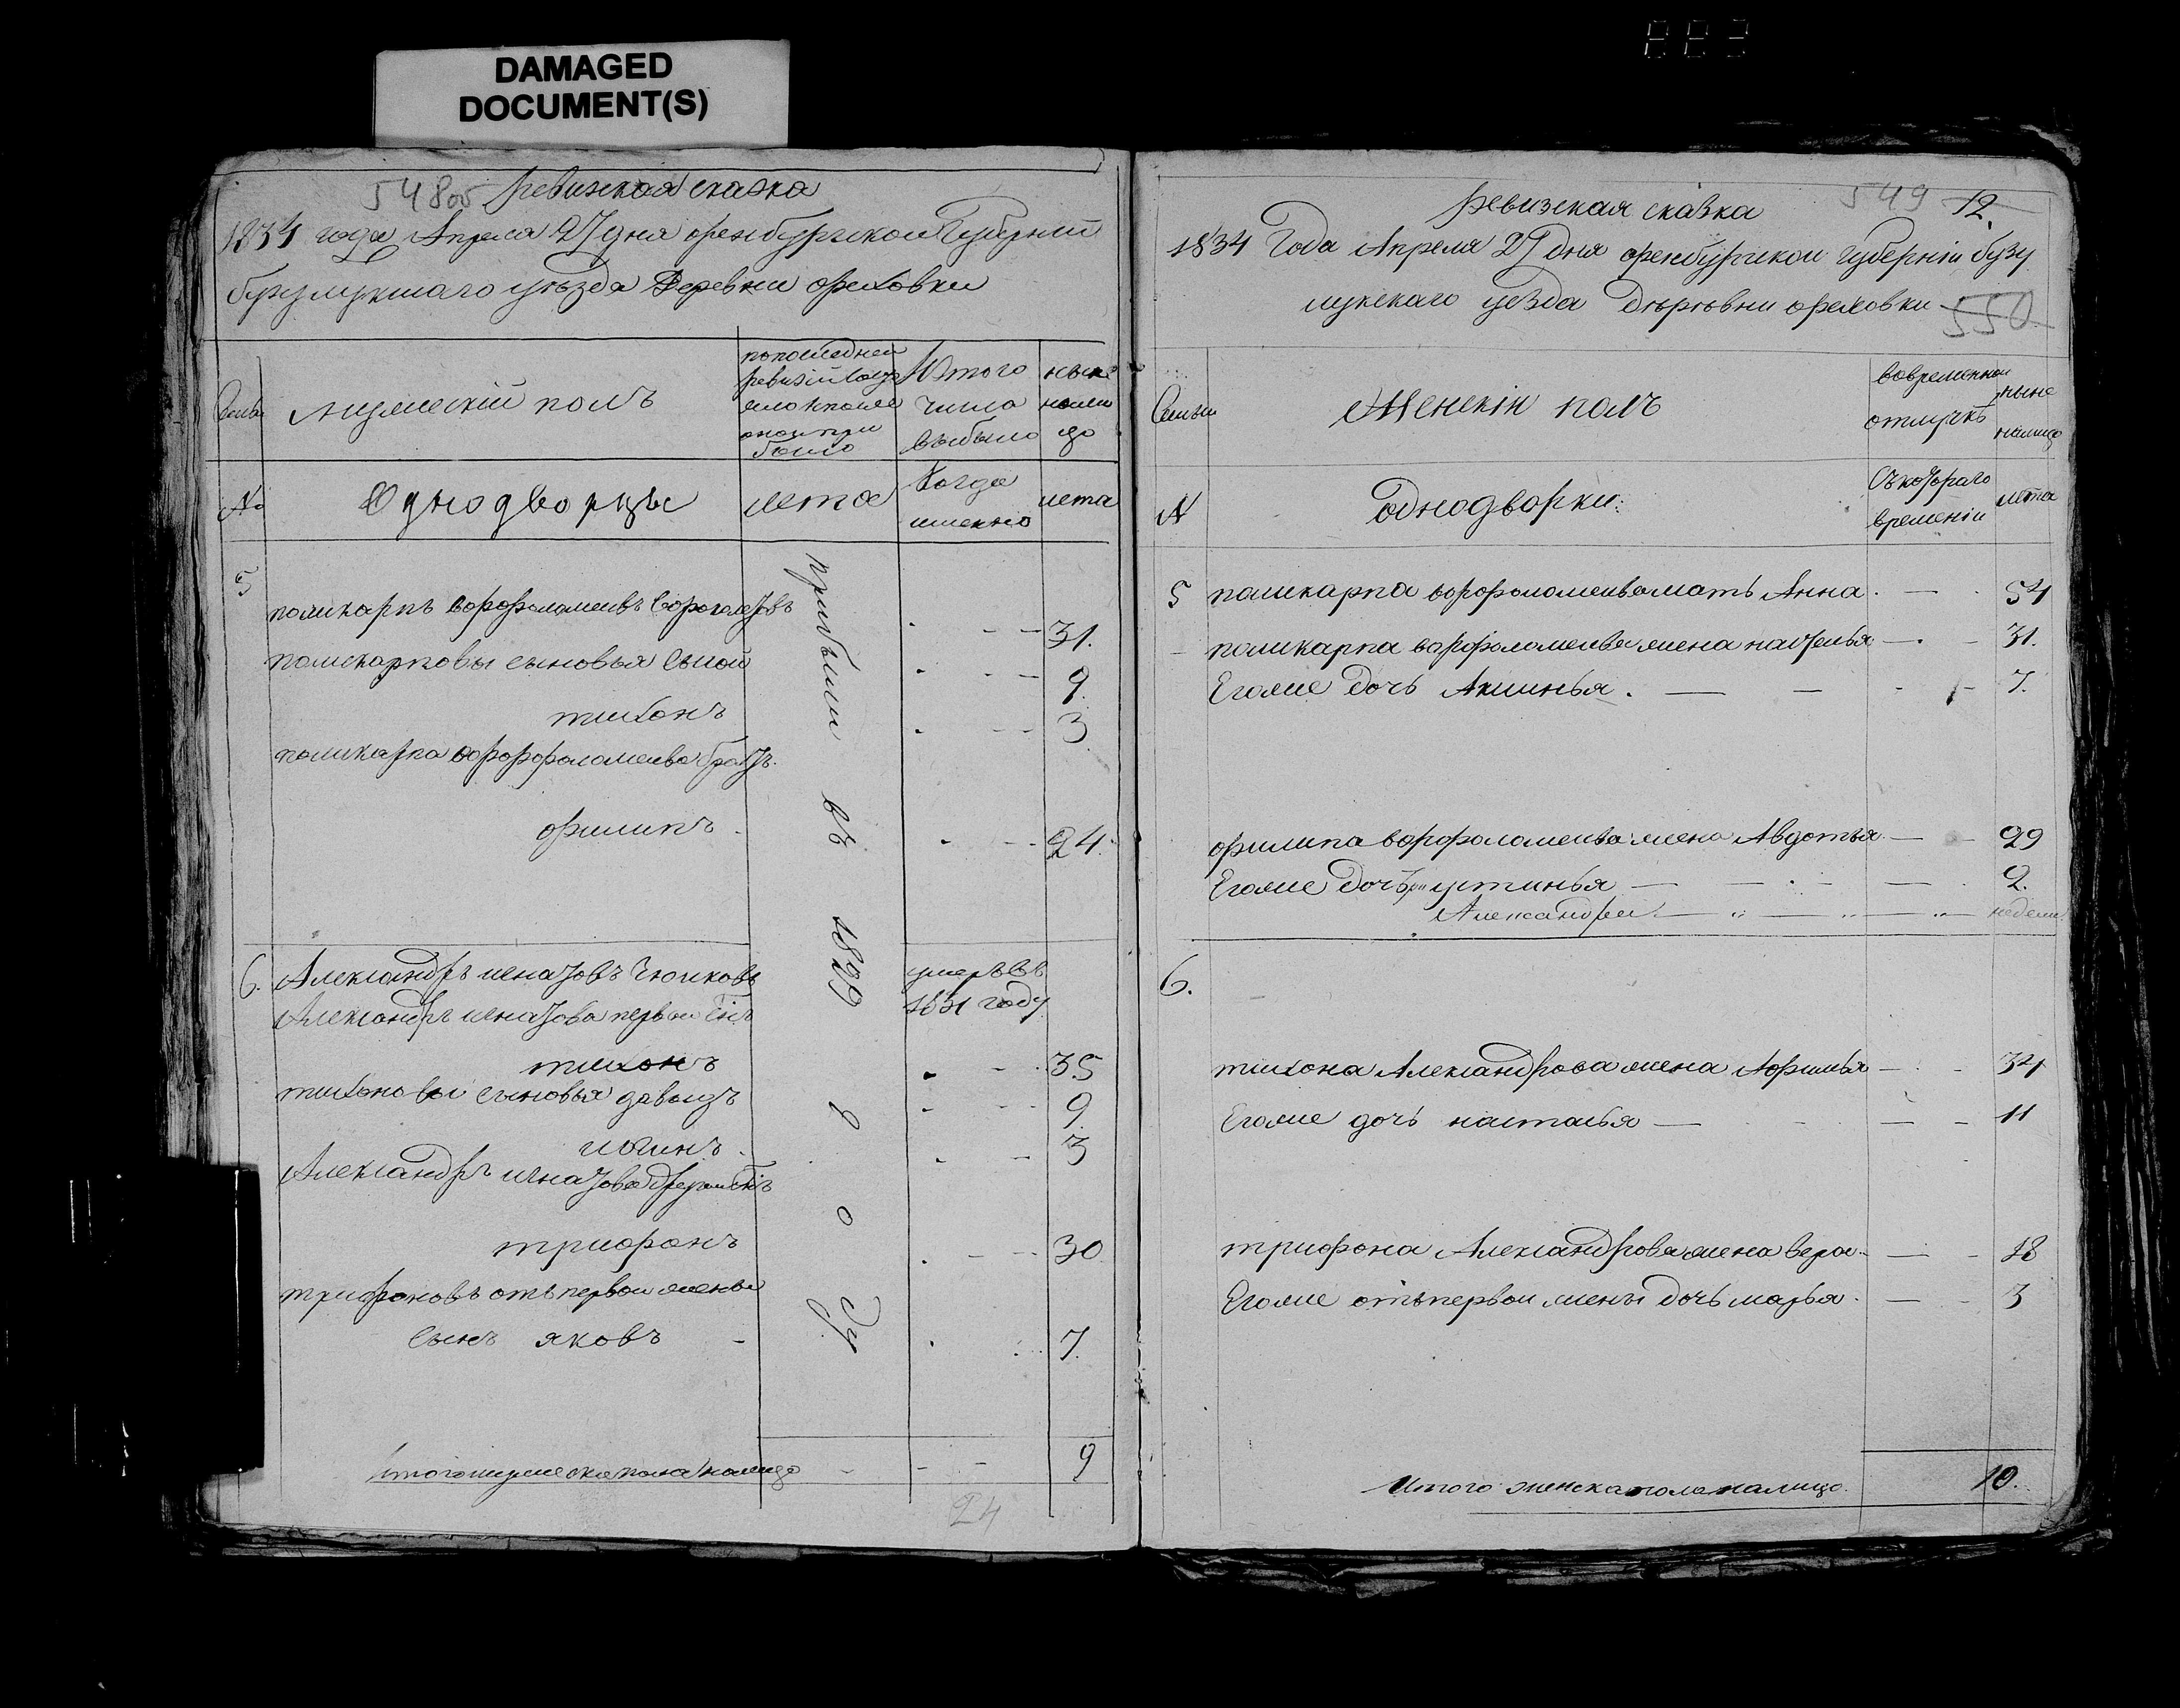 DAMAGED
DOCUMENT(S)
548об ревизская сказка
1834 года Апреля 27 дня оренбургскои Губернии
бузулукскаго уъзда Деревни ореховки
Семьи
мужескiй полъ
по последней
ревизiи состо
яло и после
оной при
было
Из того
числа
выбыло
ныне
нали
цо
№
Однодворцы
лета
Когда
именно
лета
прибыли въ 1829 году
5
поликарпъ ворфоломеивъ
31.
поликарповы сыновья сысой
9.
тихонъ
3
поликарпа ворфофоломеива братъ.
филипъ.
24.
6. Александръ игнатовъ Чюиковъ
умеръ въ
1831 году
Александръ игнатова первои сiнъ
тихонъ
35
тихоновы сыновья давыдъ
9.
логинъ.
3
Александръ игнатова другои сiнъ
трифонъ
30
трифоновъ отъ первои жены
сынъ яковъ
7.
Итого мужеска пола налицо
9
24
549 12.
ревизская сказка
1834 Года Апреля 27 дня оренбургскои губернiи бузу
лукскаго уезда дъръвни ореховки
550
Семьи
Женскiи полъ
вовременнои
отлучкъ
ныне
налицо
№
однодворки:
Съ котораго
временiи
лъта
5 поликарпа ворфоломеива мать Анна.
54
поликарпа ворфоломеива жена наталья
31.
Егоже дочь Аксинья.
7.
филипа ворфоломеива жена Авдотья
29
Егоже дочъри устинья
2.
Александра
недели
6.
тихона Александрова жена Афимья
34
Егоже дочь насталья
11
трифона Александрова жена вера
28
Егоже отъ первои жены дочь марья.
3
Итого женска пола налицо.
10.